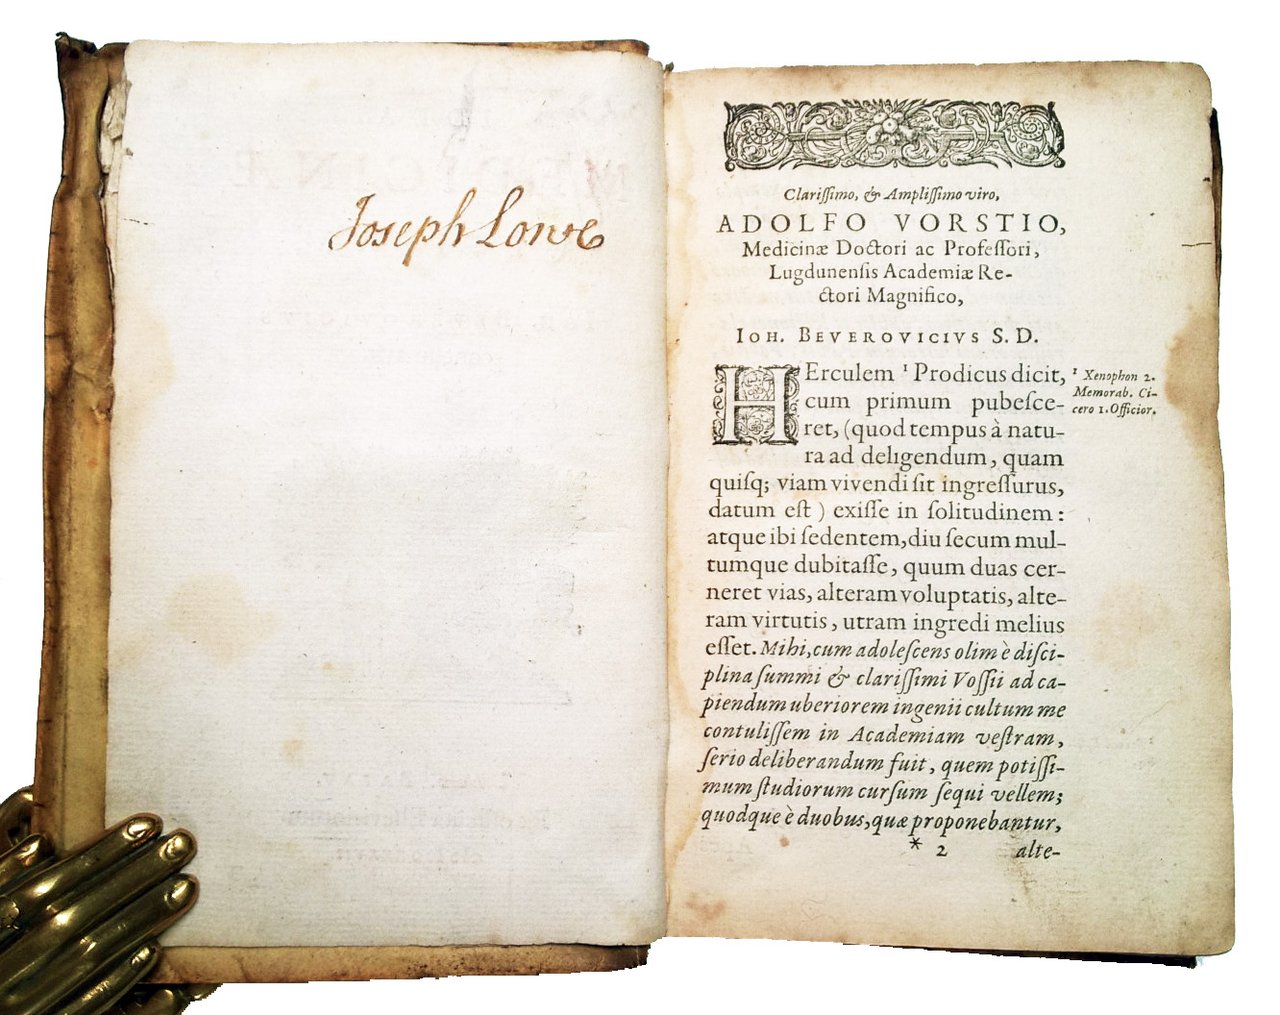 Joseph Lowe
Clariſſimo, & Ampliſſimo viro,
ADOLFO VORSTIO,
Medicinæ Doctori ac Profeſſori,
Lugdunenſis Academiæ Re-
ctori Magnifico,
IOH. BEVEROVICIVS S. D.
HErculem ¹ Prodicus dicit,
cum primum pubeſce-
ret, (quod tempus à natu-
ra ad deligendum, quam
quiſq; viam vivendi ſit ingreſſurus,
datum eſt ) exiſſe in ſolitudinem :
atque ibi ſedentem, diu ſecum mul-
tumque dubitaſſe, quum duas cer-
neret vias, alteram voluptatis, alte-
ram virtutis, utram ingredi melius
eſſet. Mihi, cum adoleſcens olim è diſci-
plina ſummi & clariſſimi Voſſii ad ca-
piendum uberiorem ingenii cultum me
contuliſſem in Academiam veſtram,
ſerio deliberandum fuit, quem potiſſi-
mum ſtudiorum curſum ſequi vellem;
quodque è duobus, quæ proponebantur,
* 2 alte-
¹ Xenophon 2.
Memorab. Ci-
cero 1. Officior.